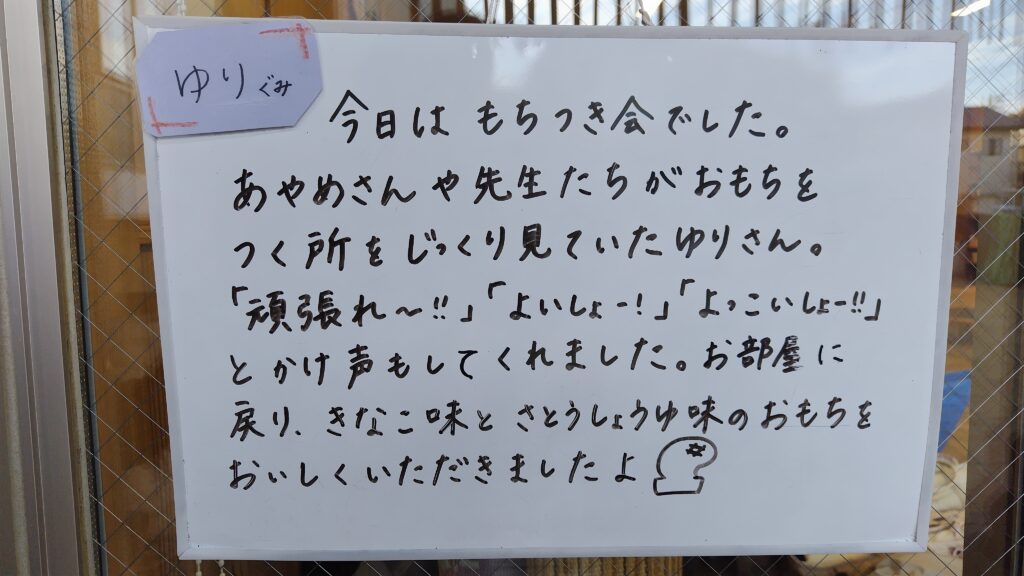 ゆりぐみ
今日は もちつき会でした。
あやめさんや先生たちがおもちを
つく所をじっくり見ていたゆりさん。
「頑張れ～!!」「よいしょー!」「よっこいしょー!!」
とかけ声もしてくれました。お部屋に
戻り、きなこ味と さとうしょうゆ味のおもちを
おいしくいただきましたよ